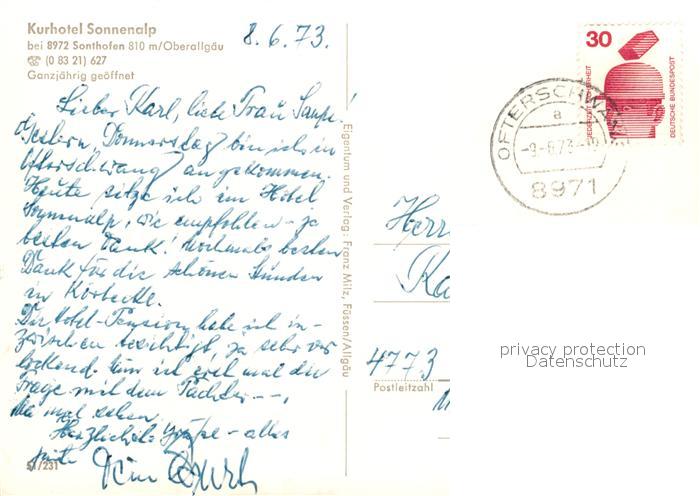 Kurhotel Sonnenalp
bei 8972 Sonthofen 810 m/Oberallgäu
☎ (0 83 21) 627
Ganzjährig geöffnet
8.6.73.
Lieber Karl, liebe Frau
Gestern, Donnerstag bin ich in
Ofterschwang angekommen.
Heute sitze ich im Hotel
Sonnenalp, wie empfohlen - ja
besten Dank! Nochmals besten
Dank für die schönen Stunden
in Körbecke.
Die Hotel-Pension habe ich in-
zwischen besichtigt, ja sehr ver-
lockend. Nun ist erst mal die
Frage mit dem Pächter - -,
na mal sehen.
Herzlichste Grüße - alles
gute
51/231
Eigentum und Verlag: Franz Milz, Füssen/Allgäu
30
BUNDESPOST
DEUTSCHE BUNDESPOST
OFTERSCHWANG
a
-9.-6.73
8971
Herr
Ka
4773
Postleitzahl
privacy protection
Datenschutz